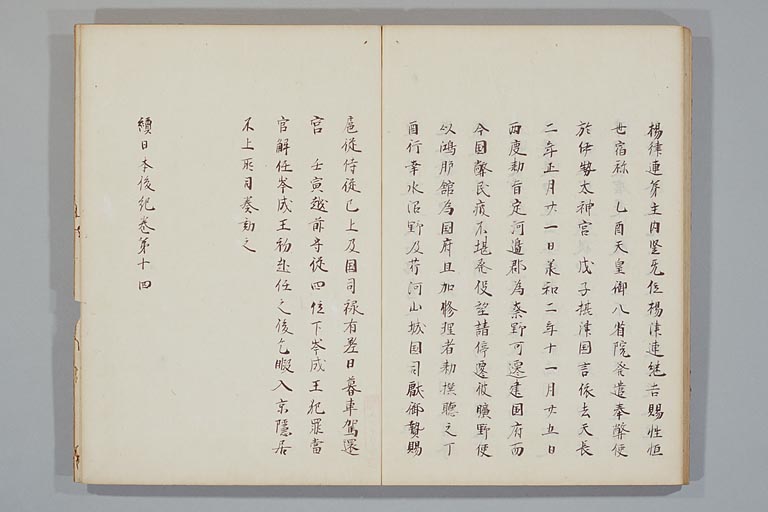 楊津連弟主内竪无位楊津連継吉賜性恒
世宿祢　乙酉天皇御八省院発遣奉幣使
於伊勢太神宮　戊子摂津国言依去天長
二年正月廿一日兼和二年十一月廿五日
両度勅旨定河邉郡為奏野可遷建国府而
今国弊民疲不堪発役望請停遷彼曠野便
以鴻臚館為国府且加修理者勅携聴之丁
酉行幸水沼野及芹河山城国司獻御贄賜
扈従侍従已上及国司禄有差日暮車駕還
宮　壬寅越前守従四位下岑成王犯罪当
官解任岑成王初赴任之後乞暇入京隠居
不上所司奏劾之
續日本後紀巻第十四